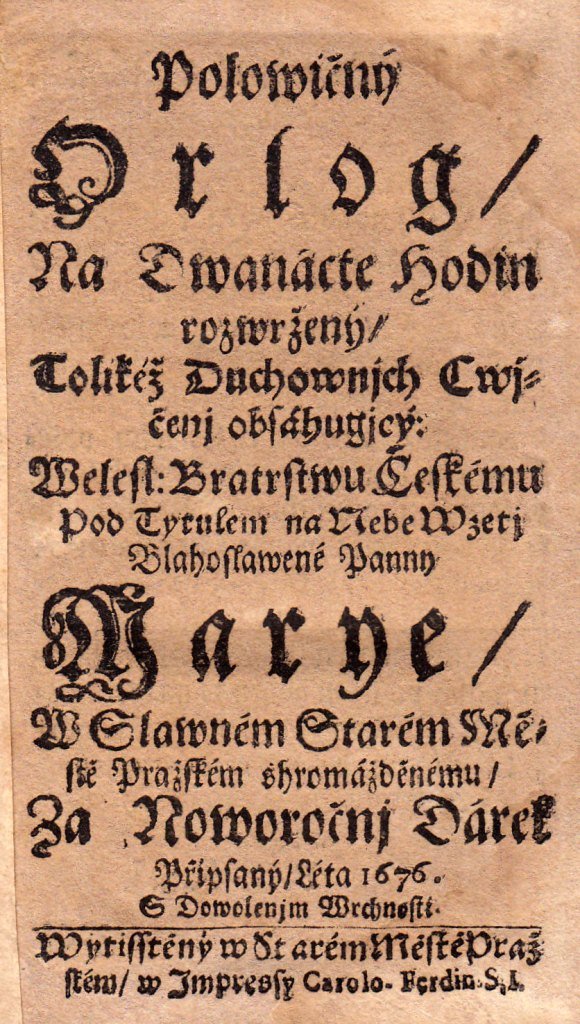 Polowičný
Orlog/
Na Dwanácte Hodin
rozwržený/
Tolikéž Duchownjch Cwj-
čenj obsáhugjcý:
Welesl: Bratrstwu Českému
Pod Tytulem na Nebe Wzetj
Blahoslawené Panny
Marye/
W Slawném Starém Mě-
stě Pražském shromážděnému/
Za Noworočnj Dárek
Připsaný/ Léta 1676.
S Dowolenjm Wrchnosti.
Wytisstěný w Starém Městě Praž-
ském/ w Impressy Carolo-Ferdin. S. I.